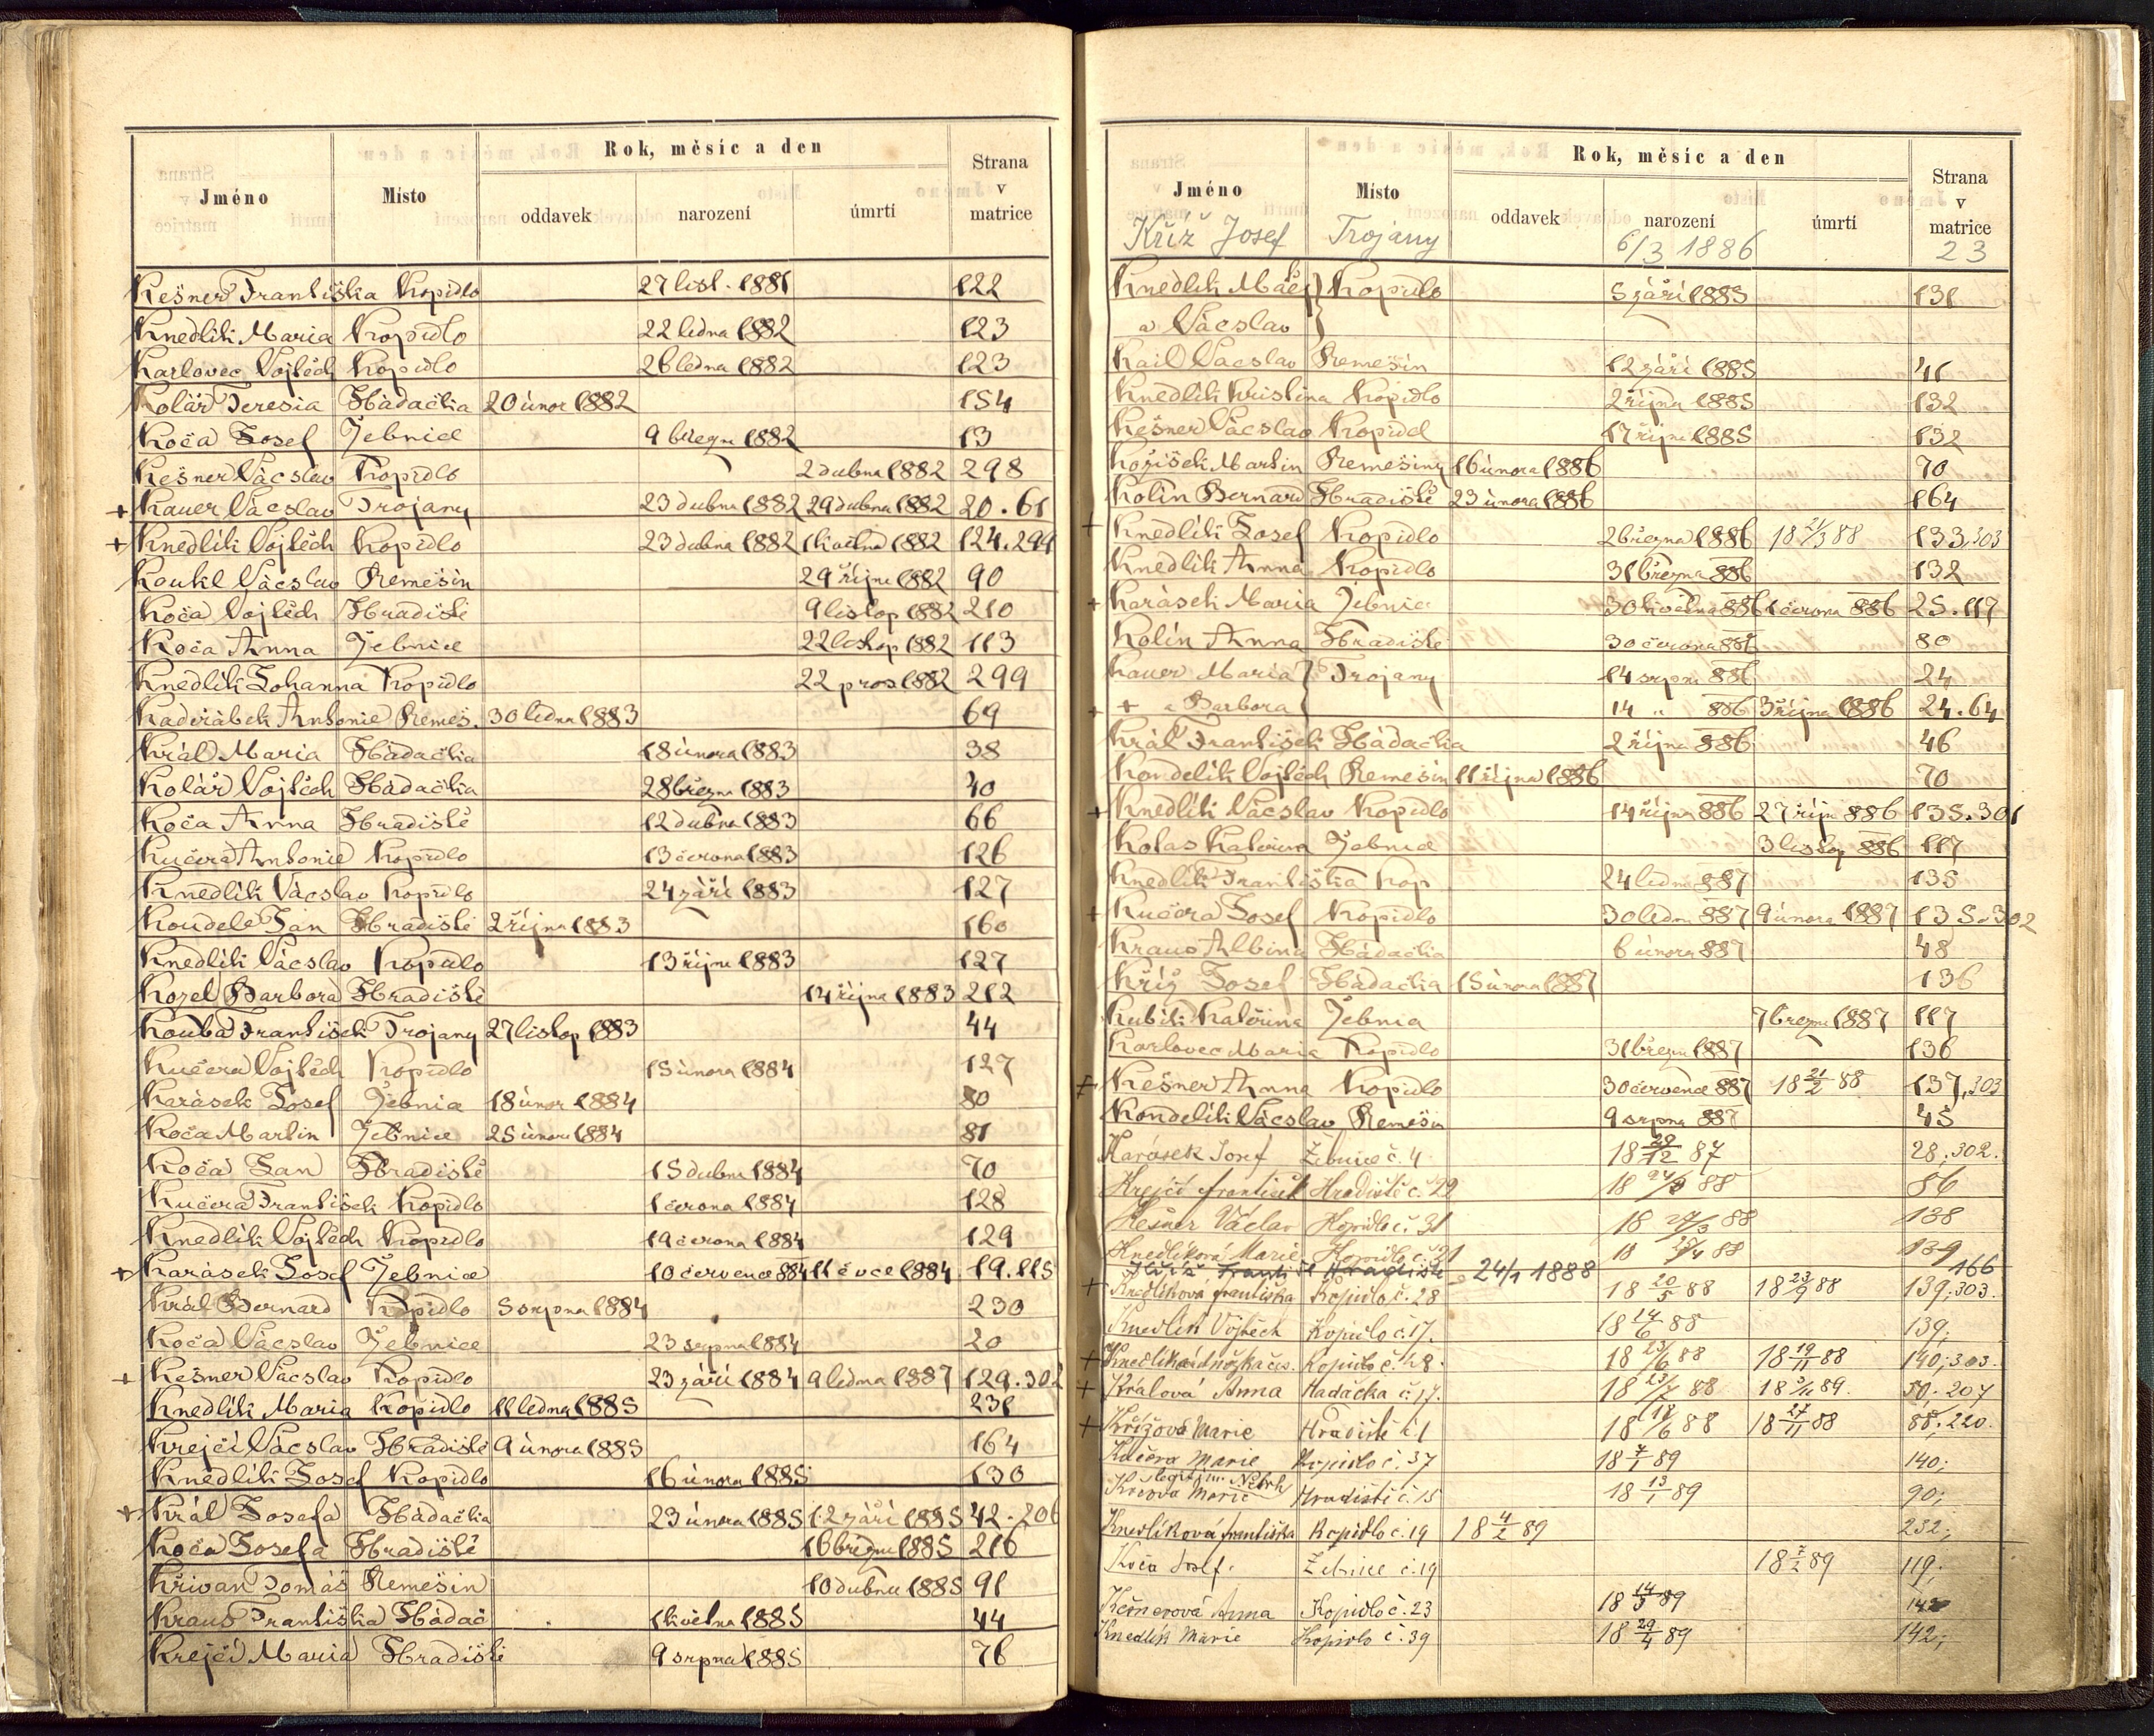 Rok, měsíc a den
Jméno Místo oddavek narození úmrtí Strana v matrice
Kešner Františka Kopidlo 27 list. 1881 122
Knedlik Maria Kopidlo 22 ledna 1882 123
Karlovec Vojtěch Kopidlo 26 ledna 1882 123
Kolář Teresia Hádačka 20 únor 1882 154
Koča Josef Žebnice 9 březn 1882 13
Kešner Václav Kopidlo 2 dubna 1882 298
+ Kauer Václav Trojany 23 dubna 1882 29 dubna 1882 20. 61
+ Knedlik Vojtěch Kopidlo 23 dubna 1882 1 květná 1882 124. 299
Koukl Václav Remešin 29 říjn 1882 90
Koča Vojtěch Hradiště 9 listop 1882 210
Koča Anna Žebnice 22 listop 1882 113
Knedlik Johanna Kopidlo 22 pros 1882 299
Kadeřábek Antonie Remeš. 30 ledna 1883 69
Král Maria Hádačka 18 února 1883 38
Kolář Vojtěch Hádačka 28 březn 1883 40
Koča Anna Hradiště 12 dubna 1883 66
Kučera Antonie Kopidlo 13 června 1883 126
Knedlik Václav Kopidlo 24 září 1883 127
Koudele Jan Hradiště 2 říjn 1883 160
Knedlik Václav Kopidlo 13 říjn 1883 127
Kozel Barbora Hradiště 14 října 1883 212
Kouba František Trojany 27 listop 1883 44
Kučera Vojtěch Kopidlo 15 února 1884 127
Karásek Josef Žebnice 18 únor 1884 80
Koča Martin Žebnice 25 února 1884 81
Koča Jan Hradiště 15 dubna 1884 70
Kučera František Kopidlo 1 června 1884 128
Knedlik Vojtěch Kopidlo 19 června 1884 129
+ Karásek Josef Žebnice 10 července 884 11 čvce 1884 19. 115
Král Bernard Kopidlo 5 srpna 1884 230
Koča Václav Žebnice 23 srpna 1884 20
+ Kešner Václav Kopidlo 23 září 1884 9 ledna 1887 129. 302
Knedlik Maria Kopidlo 11 ledna 1885 231
Krejčí Václav Hradiště 9 února 1885 164
Knedlik Josef Kopidlo 16 února 1885 130
+ Král Josefa Hádačka 23 února 1885 12 září 1885 42. 206
Koča Josefa Hradiště 16 březn 1885 216
Křivan Tomáš Remešin 10 dubna 1885 91
Kraus Františka Hádač 1 května 1885 44
Krejčí Maria Hradiště 9 srpna 1885 76
Rok, měsíc a den
Jméno Místo oddavek narození úmrtí Strana v matrice
Kříž Josef Trojany 6/3 1886 23
Knedlik Matěj } Kopidlo 5 září 1885 131
a Václav }
Kail Václav Remešin 12 září 1885 41
Knedlik Kristina Kopidlo 2 října 1885 132
Kešner Václav Kopidl 17 říjn 1885 132
Kožišek Martin Remešiny 16 února 1886 70
Kolin Bernard Hradiště 23 února 1886 164
+ Knedlik Josef Kopidlo 2 března 1886 18 21/3 88 133, 303
Knedlik Anna Kopidlo 31 března 886 132
+ Karásek Maria Žebnice 30 květná 886 1 června 886 25. 117
Kolín Anna Hradiště 30 června 886 80
Kauer Maria } Trojany 14 srpn 886 24
+ + a Barbora } 14 " 886 3 října 1886 24. 64
Král František Hádačka 2 října 886 46
Kondelik Vojtěch Remešin 11 října 1886 70
+ Knedlik Václav Kopidlo 14 října 886 27 říjn 886 135. 301
Kolas Kateřina Žebnice 3 listop 886 117
Knedlik Františka Kop 24 ledna 887 135
+ Kučera Josef Kopidlo 30 ledn 887 9 února 1887 135. 302
Kraus Albina Hádačka 6 února 887 48
Kříž Josef Hádačka 15 února 1887 136
Kubik Kateřina Žebnia 7 březn 1887 117
Karlovec Maria Kopidlo 31 březn 1887 136
+ Kešner Anna Kopidlo 30 července 887 18 21/2 88 137, 303
Kondelik Václav Remešin 9 srpna 887 45
Karásek Josef Žebnice č. 4 18 28/12 87 28, 302.
Krejčí František Hradiště č. 22 88 86
Kešner Václav Kopidlo č. 31 18 27/3 88 138
Knedlíková Marie Kopidlo č. 21 88 139
Hradiště 24/1 1888 166
+ Knedlíková Františka Kopidlo č. 28 18 20/5 88 18 23/9 88 139, 303.
Knedlík Vojtěch Kopidlo č. 17. 18 14/6 88 139;
+ Kopidlo č. 28. 18 23/6 88 18 19/11 88 140; 303.
+ Králová Anna Hadačka č. 17. 88 89. 50. 207
+ Křížová Marie Hradiště č. 1 18 18/6 88 18 27/11 88 88, 220.
Kučera Marie Kopidlo č. 37 18 7/1 89 140;
legitim. Marie Hradiště č. 15 18 13/1 89 90;
Knedlíková Františka Kopidlo č. 19 18 4/2 89 232;
Koča Josef. Žebnice č. 19 18 7/2 89 119;
Kešnerová Anna Kopidlo č. 23 18 14/3 89 142
Knedlík Marie Kopidlo č. 39 18 29/4 89 142;